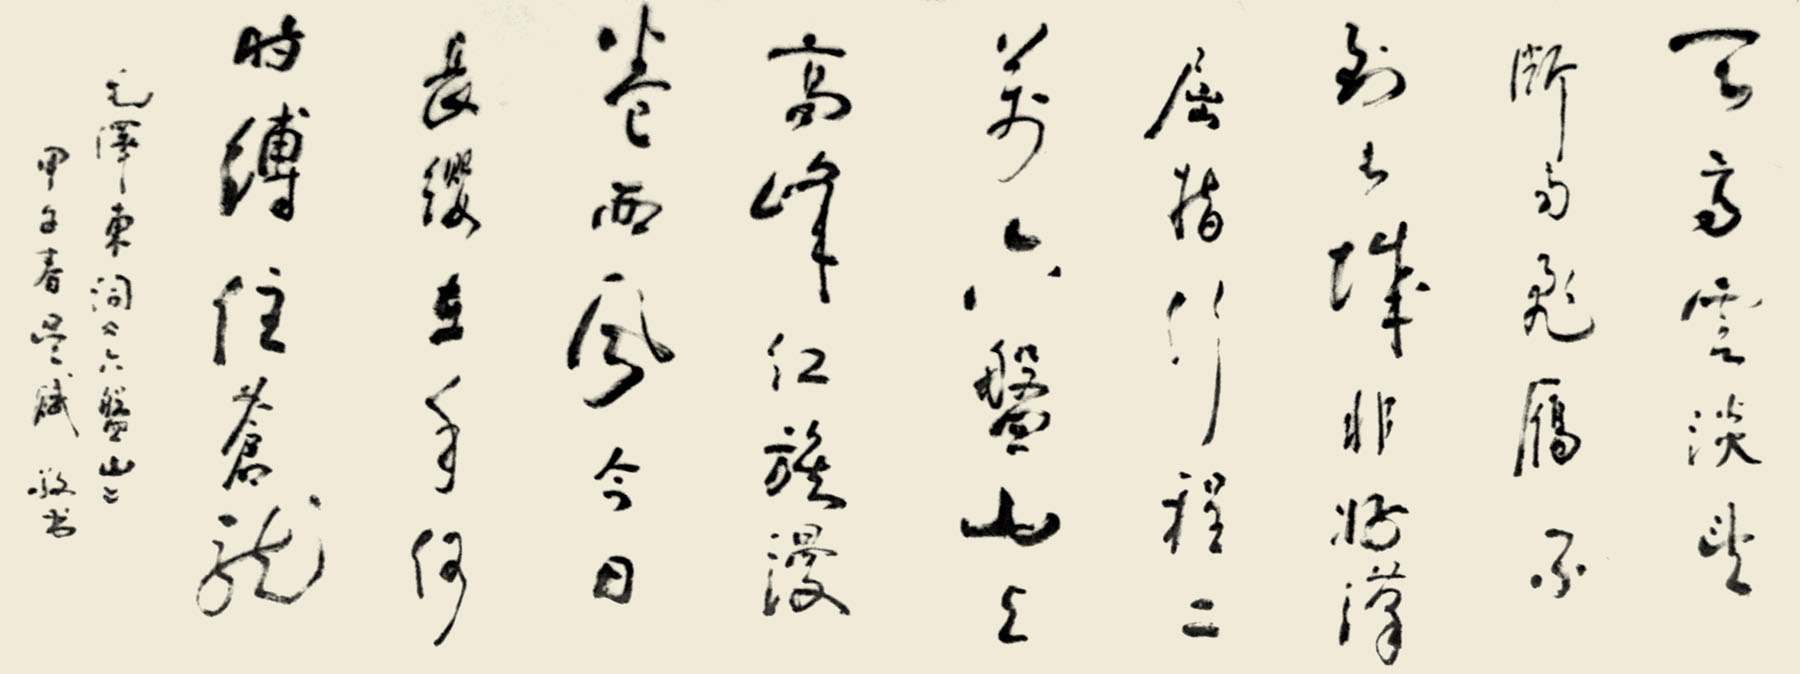 天高雲淡望
斷南飛鴈不
到长城非好漢
屈指行程二
萬六盤山上
高峰红旗漫
卷西风今日
長纓在手何
時縛住蒼龍
毛澤東词《六盤山》
甲午春 敬书